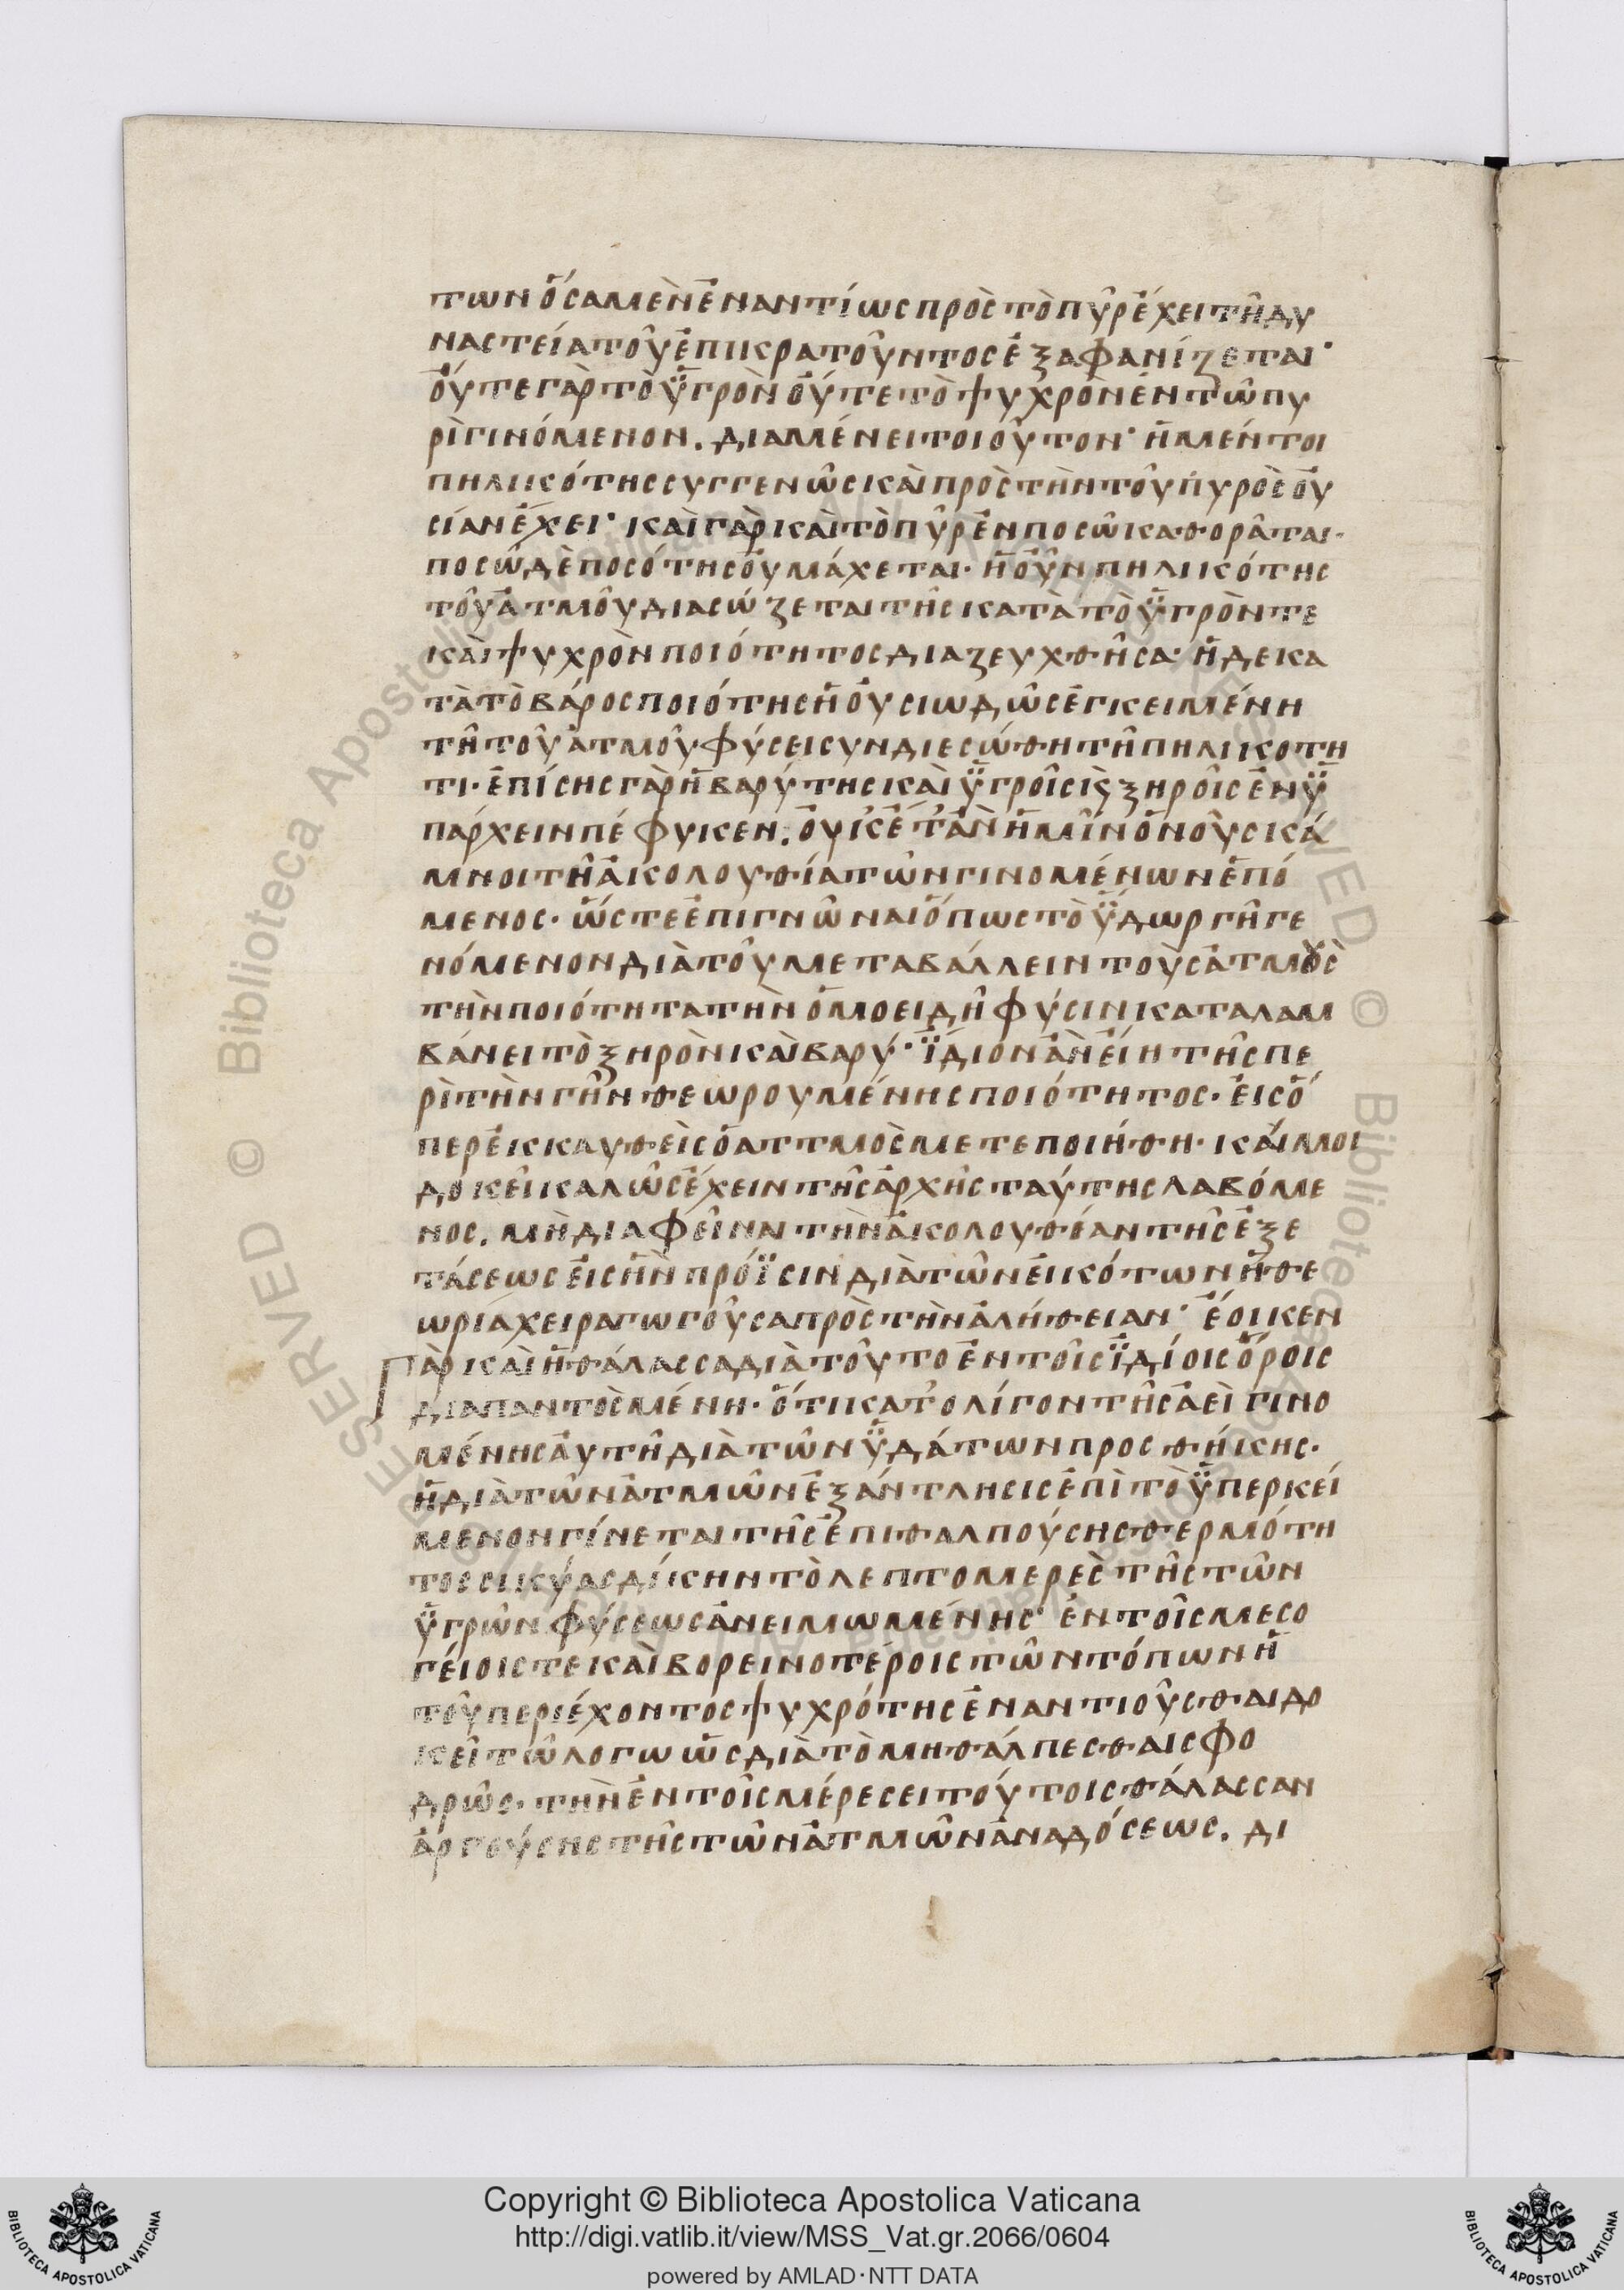 των ὅσα μὲν ἐναντίως πρὸς τὸ πῦρ ἔχει τῆ δυ
ναστεία τοῦ ἐπικρατοῦντος ἐξαφανίζεται·
οὔτε γὰρ τὸ ὑγρὸν οὔτε τὸ ψυχρὸν ἐν τῶ πυ
ρὶ γινόμενον. διαμένει τοιοῦτον· ἡ μέντοι
πηλικότης συγγενῶς καὶ πρὸς τὴν τοῦ πυρὸς οὐ
σίαν ἔχει· καὶ γὰρ καὶ τὸ πῦρ ἐν ποσῶ καθορᾶται·
ποσῶ δὲ ποσότης οὐ μάχεται· ἡ οὖν πηλικότης
τοῦ ἀτμοῦ διασώζεται τῆς κατὰ τὸ ὑγρὸν τε
καὶ ψυχρὸν ποιότητος διαζευχθῆσα· ἡ δε κα
τὰ τὸ βάρος ποιότης ἡ οὐσιωδῶς ἐγκειμένη
τῆ τοῦ ἀτμοῦ φύσει συνδιεσώθη τῆ πηλικοτη
τι· ἐπίσης γὰρ ἡ βαρύτης καὶ ὑγροῖς κς ξηροῖς ἐνϋ
πάρχειν πέφυκεν. οὐκέτ' ἂν ἡμῖν ὁ νοῦς κά
μνοι τῆ ἀκολουθία τῶν γινομένων ἑπό
μενος· ὥστε ἐπιγνῶναι ὅπως τὸ ὕδωρ γῆ γε
νόμενον διὰ τοῦ μεταβάλλειν τοὺς ἀτμοὺς
τὴν ποιότητα τὴν ὁμοειδῆ φύσιν καταλαμ
βάνει τὸ ξηρὸν καὶ βαρύ· ἴδιον ἂν εἴη τῆς πε
ρὶ τὴν γῆν θεωρουμένης ποιότητος· εἰς ὅ
περ ἐκκαυθεὶς ὁ ατμὸς μετεποιήθη· καί μοι
δοκεῖ καλῶς ἔχειν τῆς ἀρχῆς ταύτης λαβόμε
νος. μὴ διαφεῖναι τὴν ἀκολουθίαν τῆς ἐξε
τάσεως εἰς ἣν πρόϊσιν διὰ τῶν εἰκότων ἡ θε
ωρία χειραγωγοῦσα πρὸς τὴν ἀλήθειαν· ἔοικεν
Γὰρ καὶ ἡ θάλασσα διὰ τοῦτο ἐν τοῖς ἰδίοις ὅροις
διαπαντὸς μένη· ὅτι κατ' ολίγον τῆς ἀεὶ γινο
μένης αὐτῆ διὰ τῶν ὑδάτων προσθήκης·
ἡ διὰ τῶν ἀτμῶν ἐξάντλησις ἐπὶ τὸ ὑπερκεί
μενον γίνεται τῆς ἐπιθαλπούσης θερμότη
τος σικύας δίκην τὸ λεπτομερὲς τῆς τῶν
ὑγρῶν φύσεως ἀνειμωμένης· ἐν τοῖς μεσο
γείοις τε καὶ βορεινοτέροις τῶν τόπων ἡ
τοῦ περιέχοντος ψυχρότης ἐναντιοῦσθαι δο
κεῖ τῶ λογω ὡς διὰ τὸ μη θάλπεσθαι σφο
δρῶς· τὴν ἐν τοῖς μέρεσει τούτοις θάλασσαν
ἀργούσης τῆς τῶν ἀτμῶν ἀναδόσεως. δι
Copyright © Biblioteca Apostolica Vaticana
http://digi.vatlib.it/view/MSS_Vat.gr.2066/0604
powered by AMLAD·NTT DATA